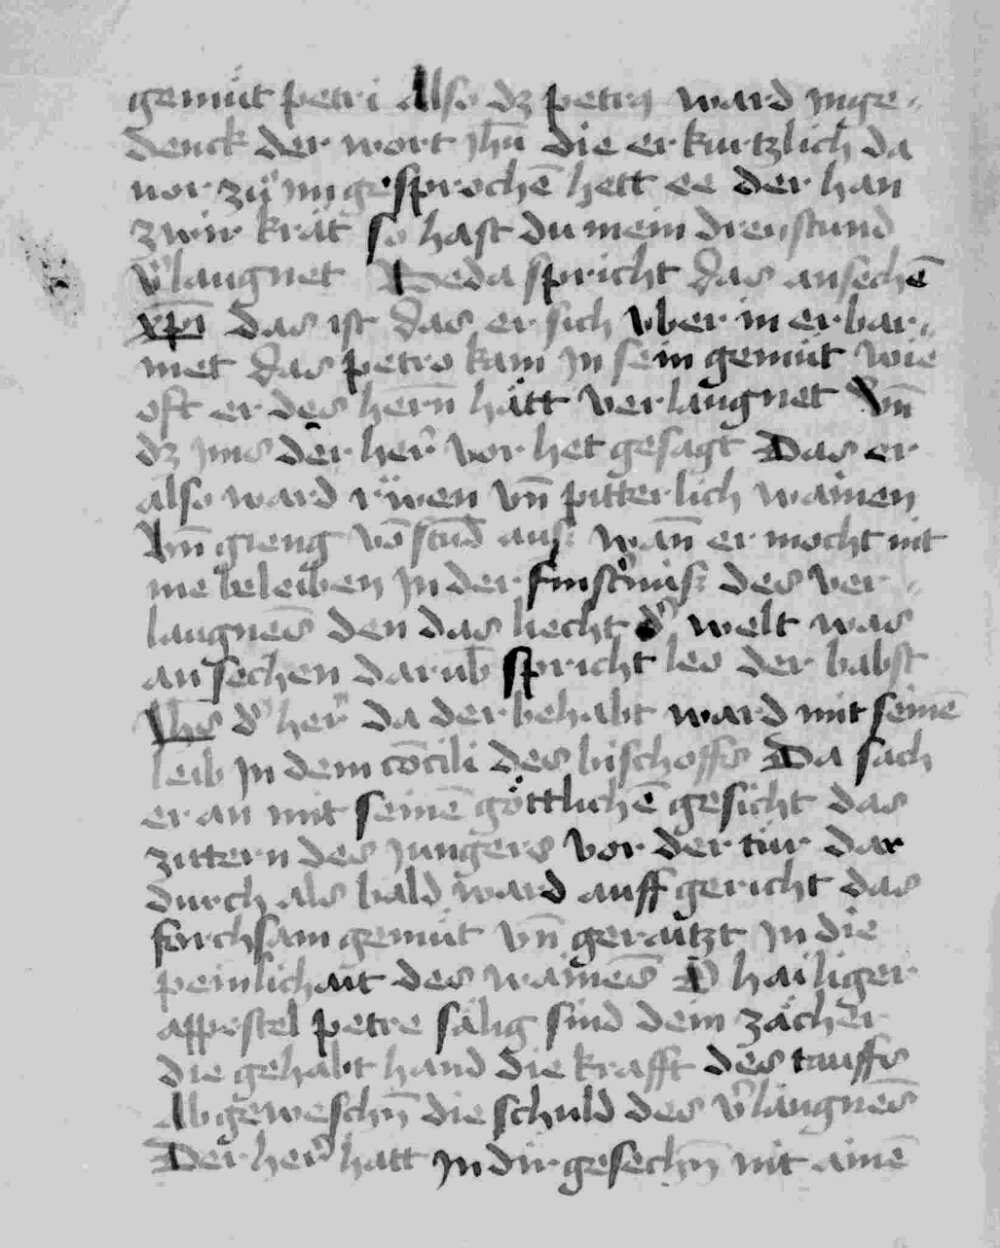 gemüt petri Also dz petrus ward inge-
denck der wort ihū die er kurtzlich da
uor zů im gesprochē hett ee der han
zwir krät so hast du mein dreystund
v̓laugnet Beda spricht das ansechē
xp̄i das ist das er sich vber in erbar-
met das petro kam in sein gemüt wie
oft er des hern̄ hätt verlaugnet Vn̄
dz ims der her̓ vor het gesagt Das er
also ward rüwen vn̄ pitterlich wainen
Vn̄ gieng vō stūd aus wan̄ er mocht nit
me beleiben in der finst̓nus des ver-
laugnēs den das liecht d̓ welt was
an sechen darūb spricht leo der babst
Ihēs d̓ her̓ da der behabt ward mit seinē
leib in dem cōcili des bischoffs Da sach
er an mit seinē göttlichē gesicht das
zittern des iungers vor der tür dar
durch als bald ward auff gericht das
forchsam gemüt vn̄ geraitzt in die
peinlichait des wainēs O hailiger
appostel petre sälig sind dein zächer
die gehabt hand die krafft des tauffs
Abgeweschn̄ die schuld des v̓laugnēs
Der her̓ hatt in dir gesechn̄ nit ainē